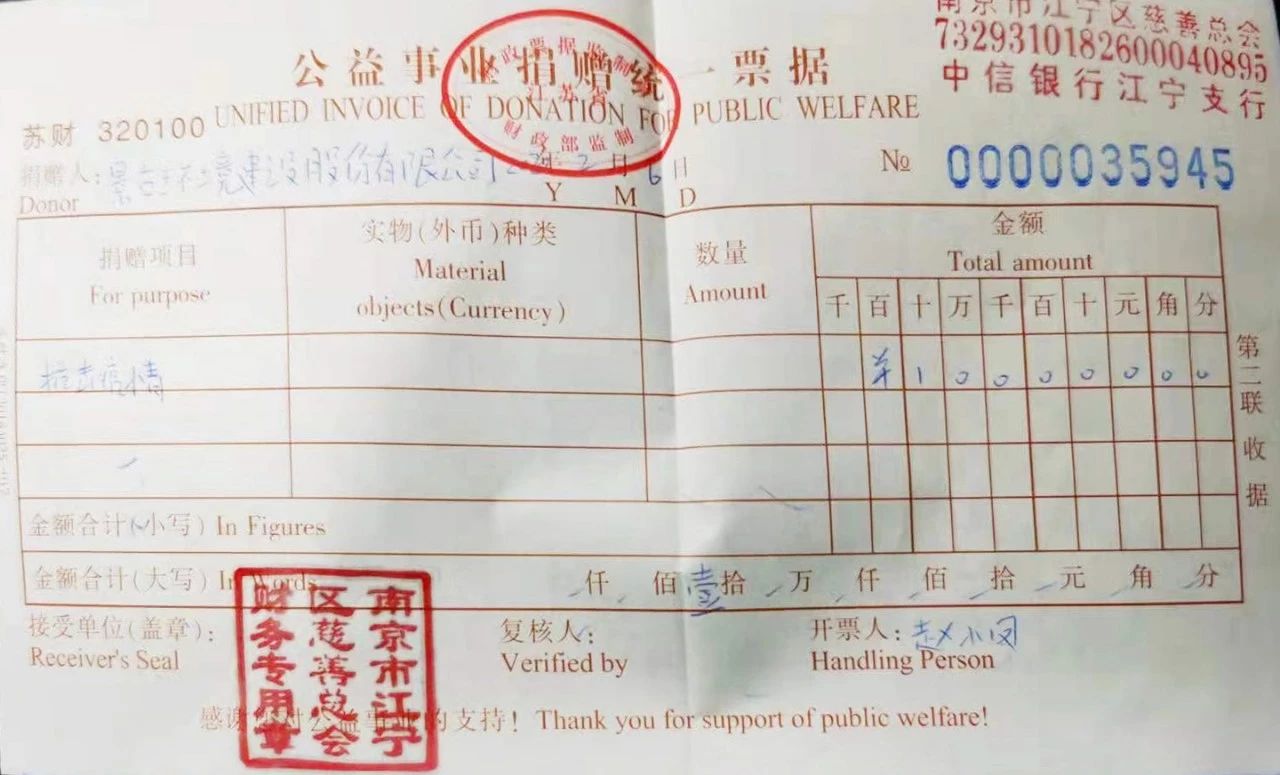 南京市江宁区慈善总会
7329310182600040895
中信银行江宁支行
公益事业捐赠统一票据
UNIFIED INVOICE OF DONATION FOR PUBLIC WELFARE
财政票据监制
江苏省
财政部监制
苏财 320100
捐赠人: 景古环境建设股份有限公司 年 2 月 6 日
Donor Y M D
№ 0000035945
捐赠项目
For purpose
实物(外币)种类
Material
objects(Currency)
数量
Amount
金额
Total amount
千 百 十 万 千 百 十 元 角 分
抗击疫情 羊 1 0 0 0 0 0 0 0
金额合计(小写) In Figures
金额合计(大写) In Words 仟 佰 壹 拾 万 仟 佰 拾 元 角 分
接受单位(盖章): 复核人: 开票人: 赵小凤
Receiver's Seal Verified by Handling Person
南京市江宁
区慈善总会
财务专用章
感谢您对公益事业的支持! Thank you for support of public welfare!
第二联 收据